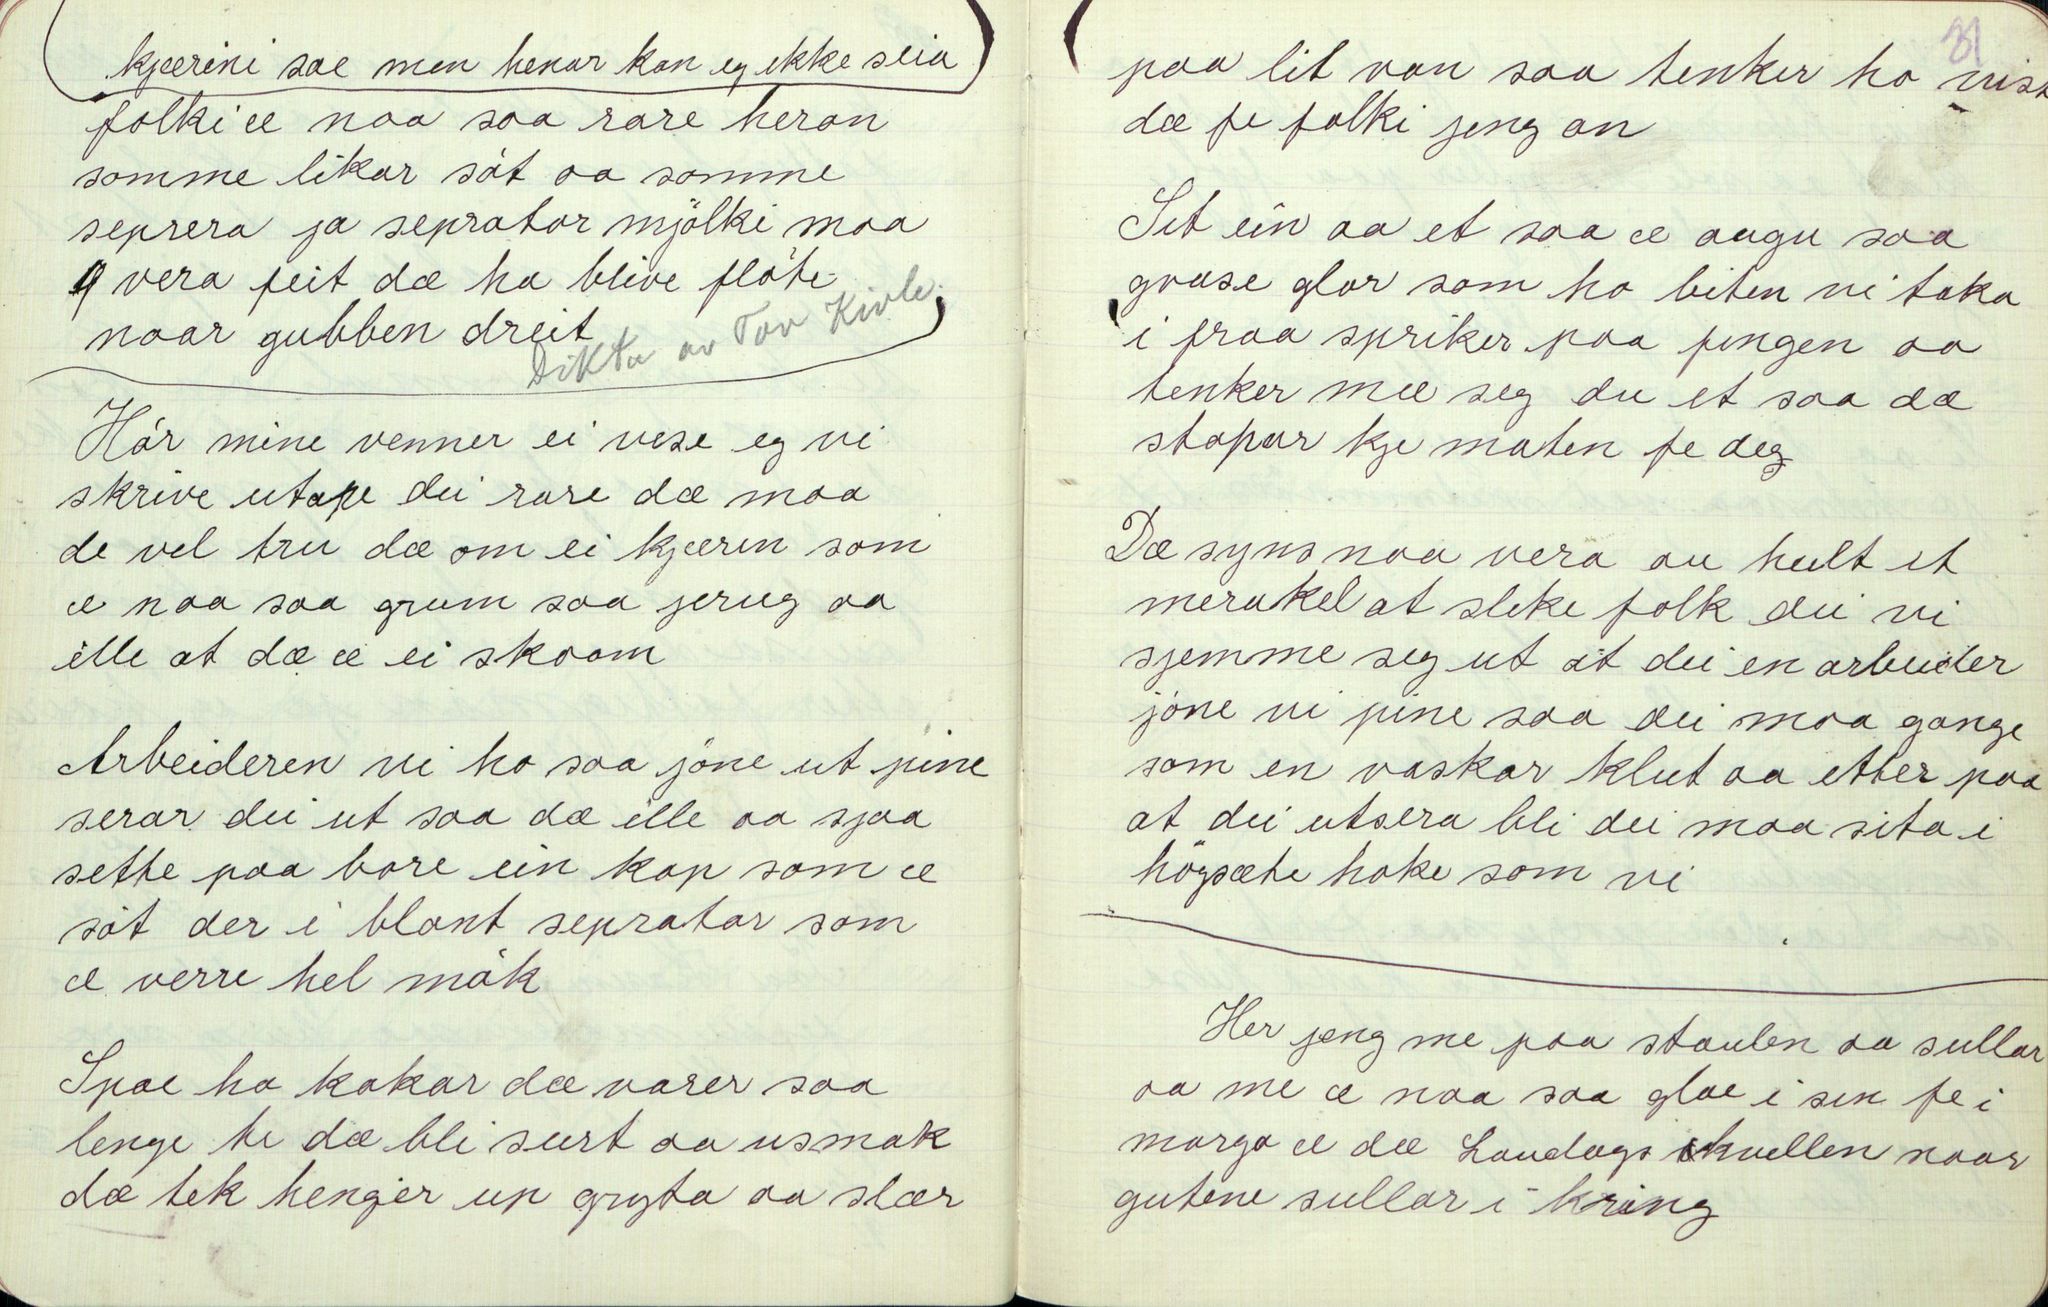 kjærini sae men henar kan eg ikke seia
folki æ naa saa rare heran
somme likar söt aa somme
seprera ja seprator mjölki maa
vera feit dæ ha blive flöte
naar gubben dreit
Dikta av Tov Kivle.
Hör mine venner ei vese eg vi
skrive utape dei rare dæ maa
de vel tru dæ om ei kjæren som
æ naa saa grum saa jerug aa
ille at dæ æ ei skaam
Arbeideren vi ho saa jöne ut pine
serar dei ut saa dæ ille aa sjaa
sette paa bore ein kop som æ
söt der i blant seprator som
æ verre hel mök
Spae ho kokar dæ varer saa
lenge te dæ bli surt aa usmak
dæ tek henger up gryta aa slær
31
paa lit van saa tenker ho vist
dæ fe folki jeng an
Set ein aa et saa æ augu saa
gvase glor som ho biten vi taka
i fraa spriker paa fingen aa
tenker mæ seg du et saa dæ
stopar kje maten fe deg
Dæ syns naa vera au heilt et
merakel at sleke folk dei vi
sjemme seg ut at dei en arbeider
jöne vi pine saa dei maa gange
som en vaskar klut aa etter paa
at dei utsera bli dei maa sita i
högsæte hoke som vi
Her jeng me paa staulen aa sullar
aa me æ naa saa glae i sin fe i
morgo æ dæ Laudags kvellen naar
gutene sullar i kring